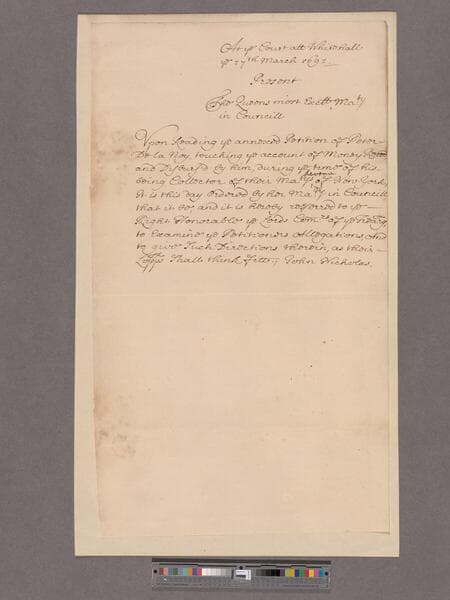 At ye Court att Whitehall
ye 17th March 1691
Present
The Queens most Excellt Maty
in Councill
Vpon Reading ye annexed Petition of Peter
De la Noy, touching ye account of Money
and Disburs'd by him, during ye time of his
being Collector of their Matys Revenue of New York,
It is this day ordered by her Maty in Councill
that it be, and it is hereby referred to ye
Right Honorable ye Lords Comrs of ye Treāry
to Examine ye Petitioners Allegations, And
to give Such Directions therein, as their
Lopps Shall think fitt:; John Nicholas.